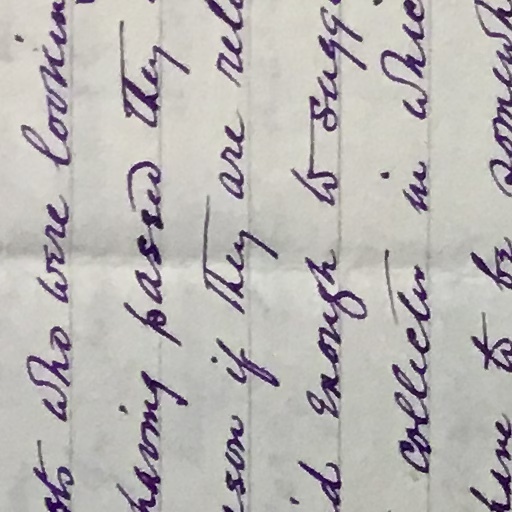 sts who were lookin
having passed they
eson if they are rel
id enough to sugg
collector in whic
have to be somewh